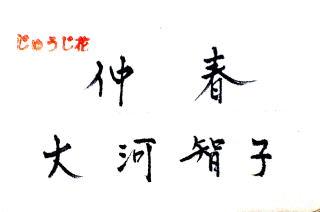 じゅうじ花
仲春
大河智子